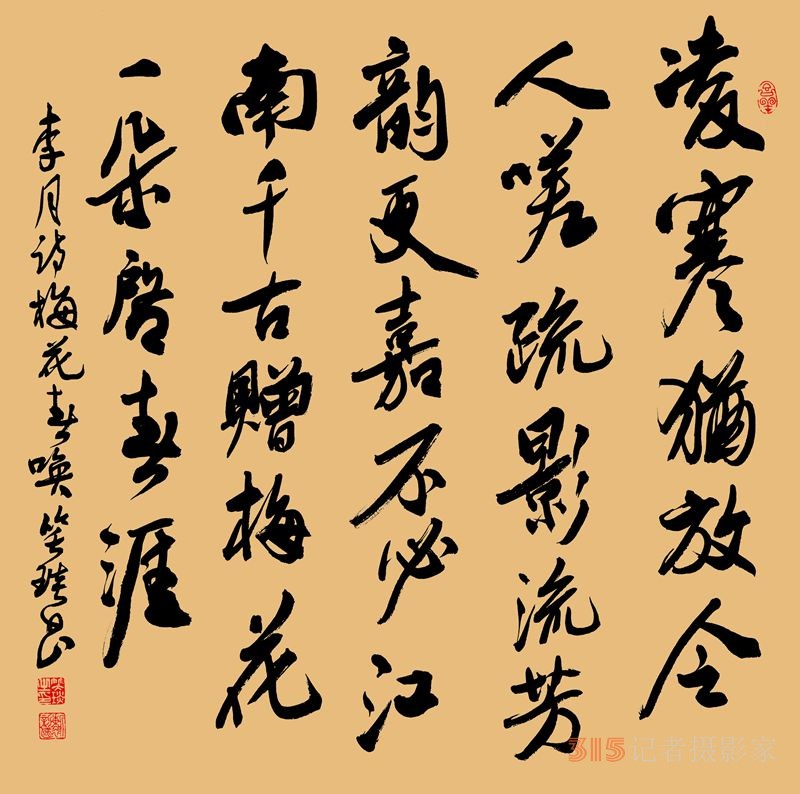 凌寒猶放令
人嗟疏影流芳
韵更嘉不必江
南千古贈梅花
一朵啓春涯
李月诗梅花春唤
315记者摄影家